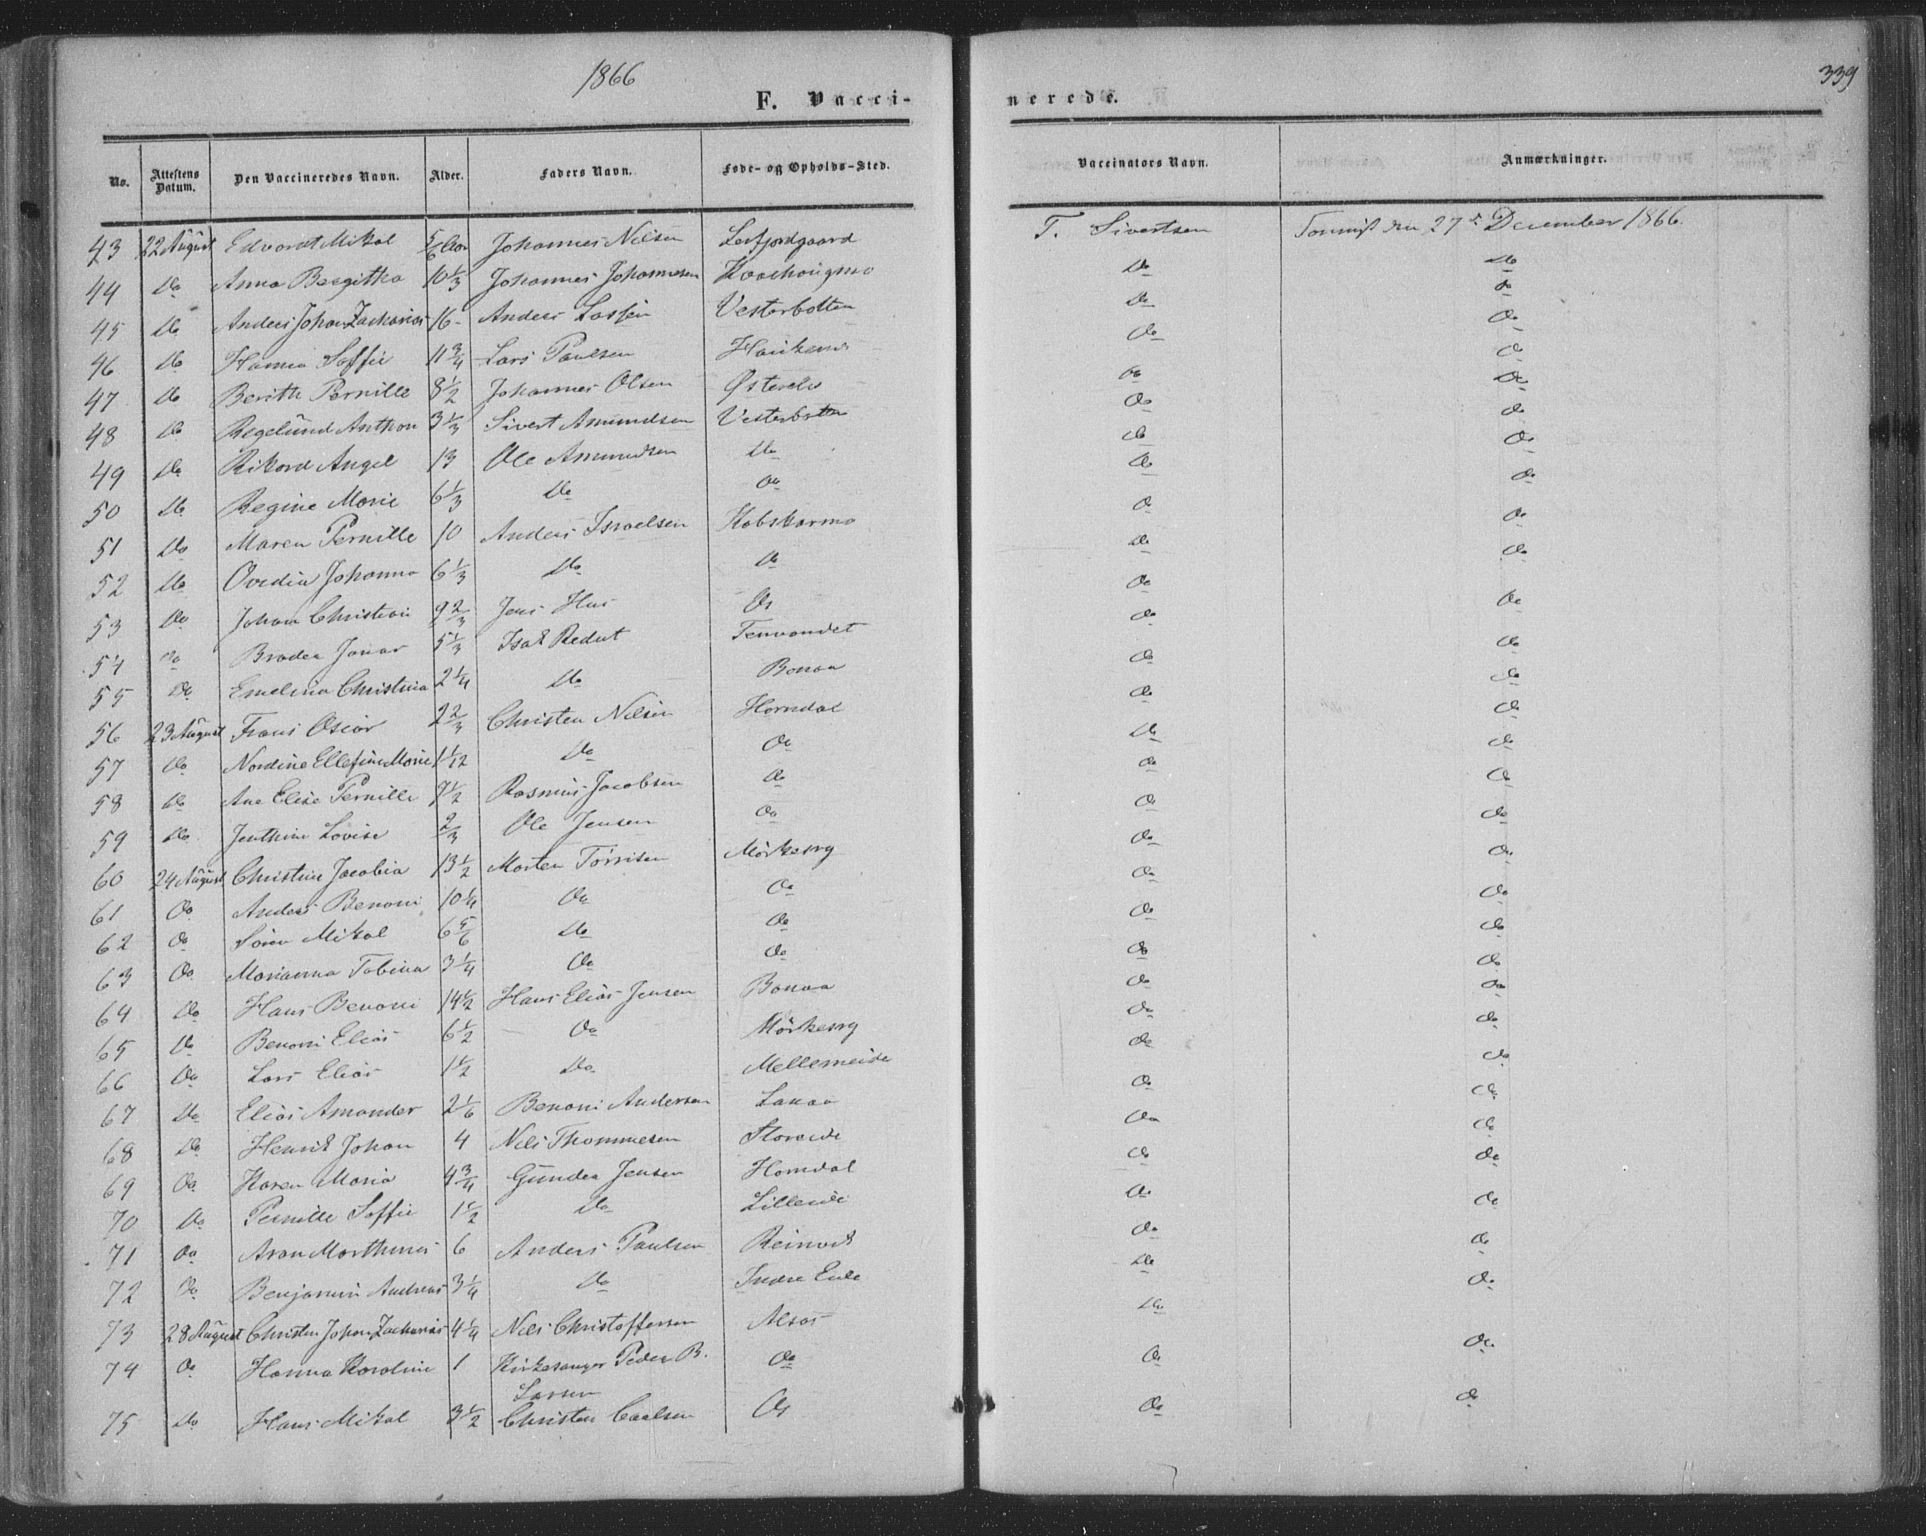 1866
339
F. Vacci-
nerede.
No. Attestens Datum. Den Vaccineredes Navn. Alder. Faders Navn. Føde- og Opholds-Sted. Vaccinators Navn. Anmærkninger.
43 22 August Edvardt Mikal 5/6 Johannes Nilsen Leifjordgaard T. Sivertsen den 27de December 1866.
44 Do Anna Bergitha 10 1/3 Johannes Johannesen Do Do
45 Do Anders Johan Zackarias 16 Anders Larsen Vesterbotten Do Do
46 Do Hanna Soffie 11 3/4 Lars Paulsen Do Do
47 Do Berith Pernille 8 1/2 Johannes Olsen Do Do
48 Do Anthon 3 1/3 Sivert Amundsen Vesterbotten Do Do
49 Do Rikard Angel 13 Ole Amundsen Do Do Do
50 Do Regine Marie 6 1/3 Do Do Do Do
51 Do Maren Pernille 10 Anders Israelsen Kobskarmo Do Do
52 Do Ovedia Johanna 6 1/3 Do Do Do Do
53 Do Johan Christian 9 2/3 Jens Hus Do Do Do
54 Do Jonas 5 1/3 Isak Tennvandet Do Do
55 Do Emelina Christina 2 1/4 Do Bonaa Do Do
56 23 August Frans Oscar 2 2/3 Christen Nilsen Horndal Do Do
57 Do Nordine Ellefine Marie 1 1/12 Do Do Do Do
58 Do Ane Elise Pernille 7 1/2 Rasmus Jacobsen Do Do Do
59 Do Jenthine Lovise 2/3 Ole Jensen Do Do Do
60 24 August Christine Jacobia 13 1/2 Morten Tørrisen Mørkesvig Do Do
61 Do Anders Benoni 10 1/4 Do Do Do Do
62 Do Søren Mikal 6 5/6 Do Do Do Do
63 Do Marianna Tobina 3 1/4 Do Do Do Do
64 Do Hans Benoni 14 1/2 Hans Elias Jensen Bonaa Do Do
65 Do Benoni Elias 6 1/2 Do Mørkesvig Do Do
66 Do Lars Elias 1 1/2 Do Mellemeide Do Do
67 Do Elias Amander 2 1/6 Benoni Andersen Lanaa Do Do
68 Do Henrik Johan 4 Nils Thommesen Storeide Do Do
69 Do Karen Maria 4 3/4 Gunder Jensen Horndal Do Do
70 Do Pernille Soffie 1 1/2 Do Lilleeide Do Do
71 Do Aron Marthinus 6 Anders Paulsen Reinvik Do Do
72 Do Benjamin Andreas 3 1/4 Do Indre Eide Do Do
73 28 August Christen Johan Zackarias 4 1/4 Nils Christoffersen Alsos Do
74 Do Hanna Karoline 1 Kirkesanger Peder B. Do Do Do
Larsen
75 Do Hans Mikal 3 1/2 Christen Carlsen Do Do Do